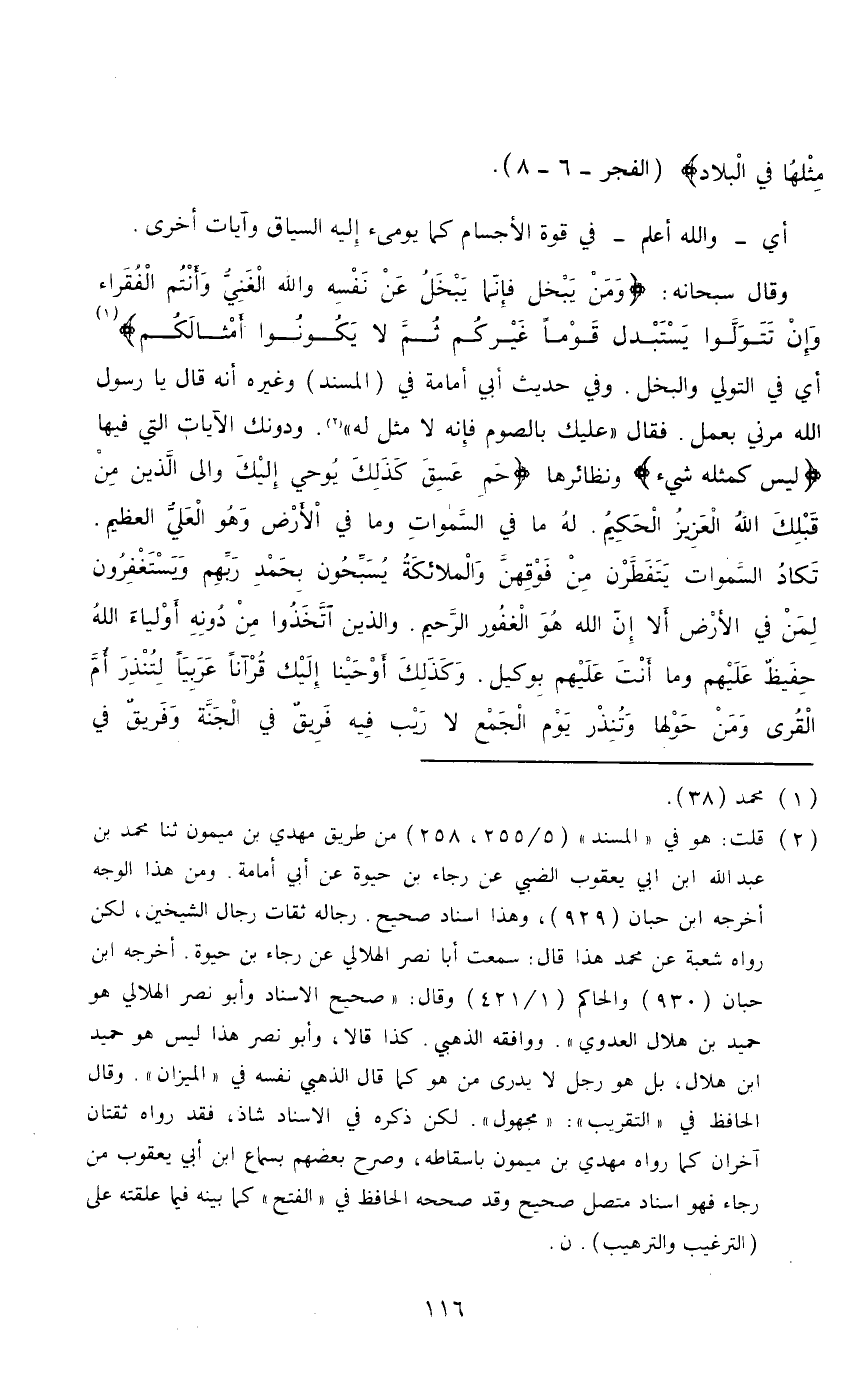 مِثْلهُا في الْبلاد﴾ (الفجر - ٦ - ٨).
أي - والله أعلم - في قوة الأجسام كما يومىء إليه السياق وآيات أخرى.
وقال سبحانه: ﴿وَمَنْ يَبْخل فإنّما يَبْخَلُ عَنْ نَفْسِه والله الْغَنيُّ وَأَنْتُم الْفُقَراء
وَإنْ تَتَوَلَّوا يَسْتَبْدل قَوْماً غَيْركُم ثُمَّ لا يَكُونُوا أمْثالَكُم﴾(١)
أي في التولي والبخل. وفي حديث أبي أمامة في (المسند) وغيره أنه قال يا رسول
الله مرني بعمل. فقال «عليك بالصوم فإنه لا مثل له»(٢). ودونك الآيات التي فيها
﴿ليس كمثله شيء﴾ ونظائرها ﴿حَم عَسِقَ كَذَلِكَ يُوحي إلَيْكَ والى الَّذين مِنْ
قَبْلِكَ اللهُ الْعَزيزُ الْحَكيمُ. لهُ ما في السَّمٰواتِ وما في الْأرْض وَهُو الْعَليُّ العظيم.
تَكادُ السَّموات يَتَفَطَّرْن مِنْ فَوْقِهنَّ وَالْملائكَةُ يُسَبِّحُون بِحَمْدِ رَبِّهم وَيَسْتَغْفِرُون
لِمَنْ في الأرْض ألا إنّ الله هُوَ الْغفُور الرَّحيم. والذين آتَّخَذُوا مِنْ دُونِهِ أوْلياءَ اللهُ
حِفَيظٌ عَلَيْهم وما أنْتَ عَلَيْهم بِوكيل. وَكَذَلِكَ أوْحَيْنا إلَيْك قُرْآناً عَرَبيَاً لِتُنْذِرَ أُمَّ
الْقُرى وَمَنْ حَوْلها وَتُنْذِر يَوْم الْجَمْع لا رَيْب فيه فَريقٌ في الْجَنَّة وَفَريقٌ في
(١) محمد (٣٨).
(٢) قلت: هو في «المسند» (٥/٢٥٥، ٢٥٨) من طريق مهدي بن ميمون ثنا محمد بن
عبدالله ابن ابي يعقوب الضبي عن رجاء بن حيوة عن أبي أمامة. ومن هذا الوجه
أخرجه ابن حبان (٩٢٩)، وهذا اسناد صحيح. رجاله ثقات رجال الشيخين، لكن
رواه شعبة عن محمد هذا قال: سمعت أبا نصر الهلالي عن رجاء بن حيوة. أخرجه ابن
حبان (٩٣٠) والحاكم (١/٤٢١) وقال: «صحيح الاسناد وأبو نصر الهلالي هو
حميد بن هلال العدوي». ووافقه الذهبي. كذا قالا، وأبو نصر هذا ليس هو حميد
ابن هلال، بل هو رجل لا يدرى من هو كما قال الذهبي نفسه في «الميزان». وقال
الحافظ في «التقريب»: «مجهول». لكن ذكره في الاسناد شاذ، فقد رواه ثقتان
آخران كما رواه مهدي بن ميمون باسقاطه، وصرح بعضهم بسماع ابن أبي يعقوب من
رجاء فهو اسناد متصل صحيح وقد صححه الحافظ في «الفتح» كما بينه فيما علقته على
(الترغيب والترهيب). ن.
١١٦